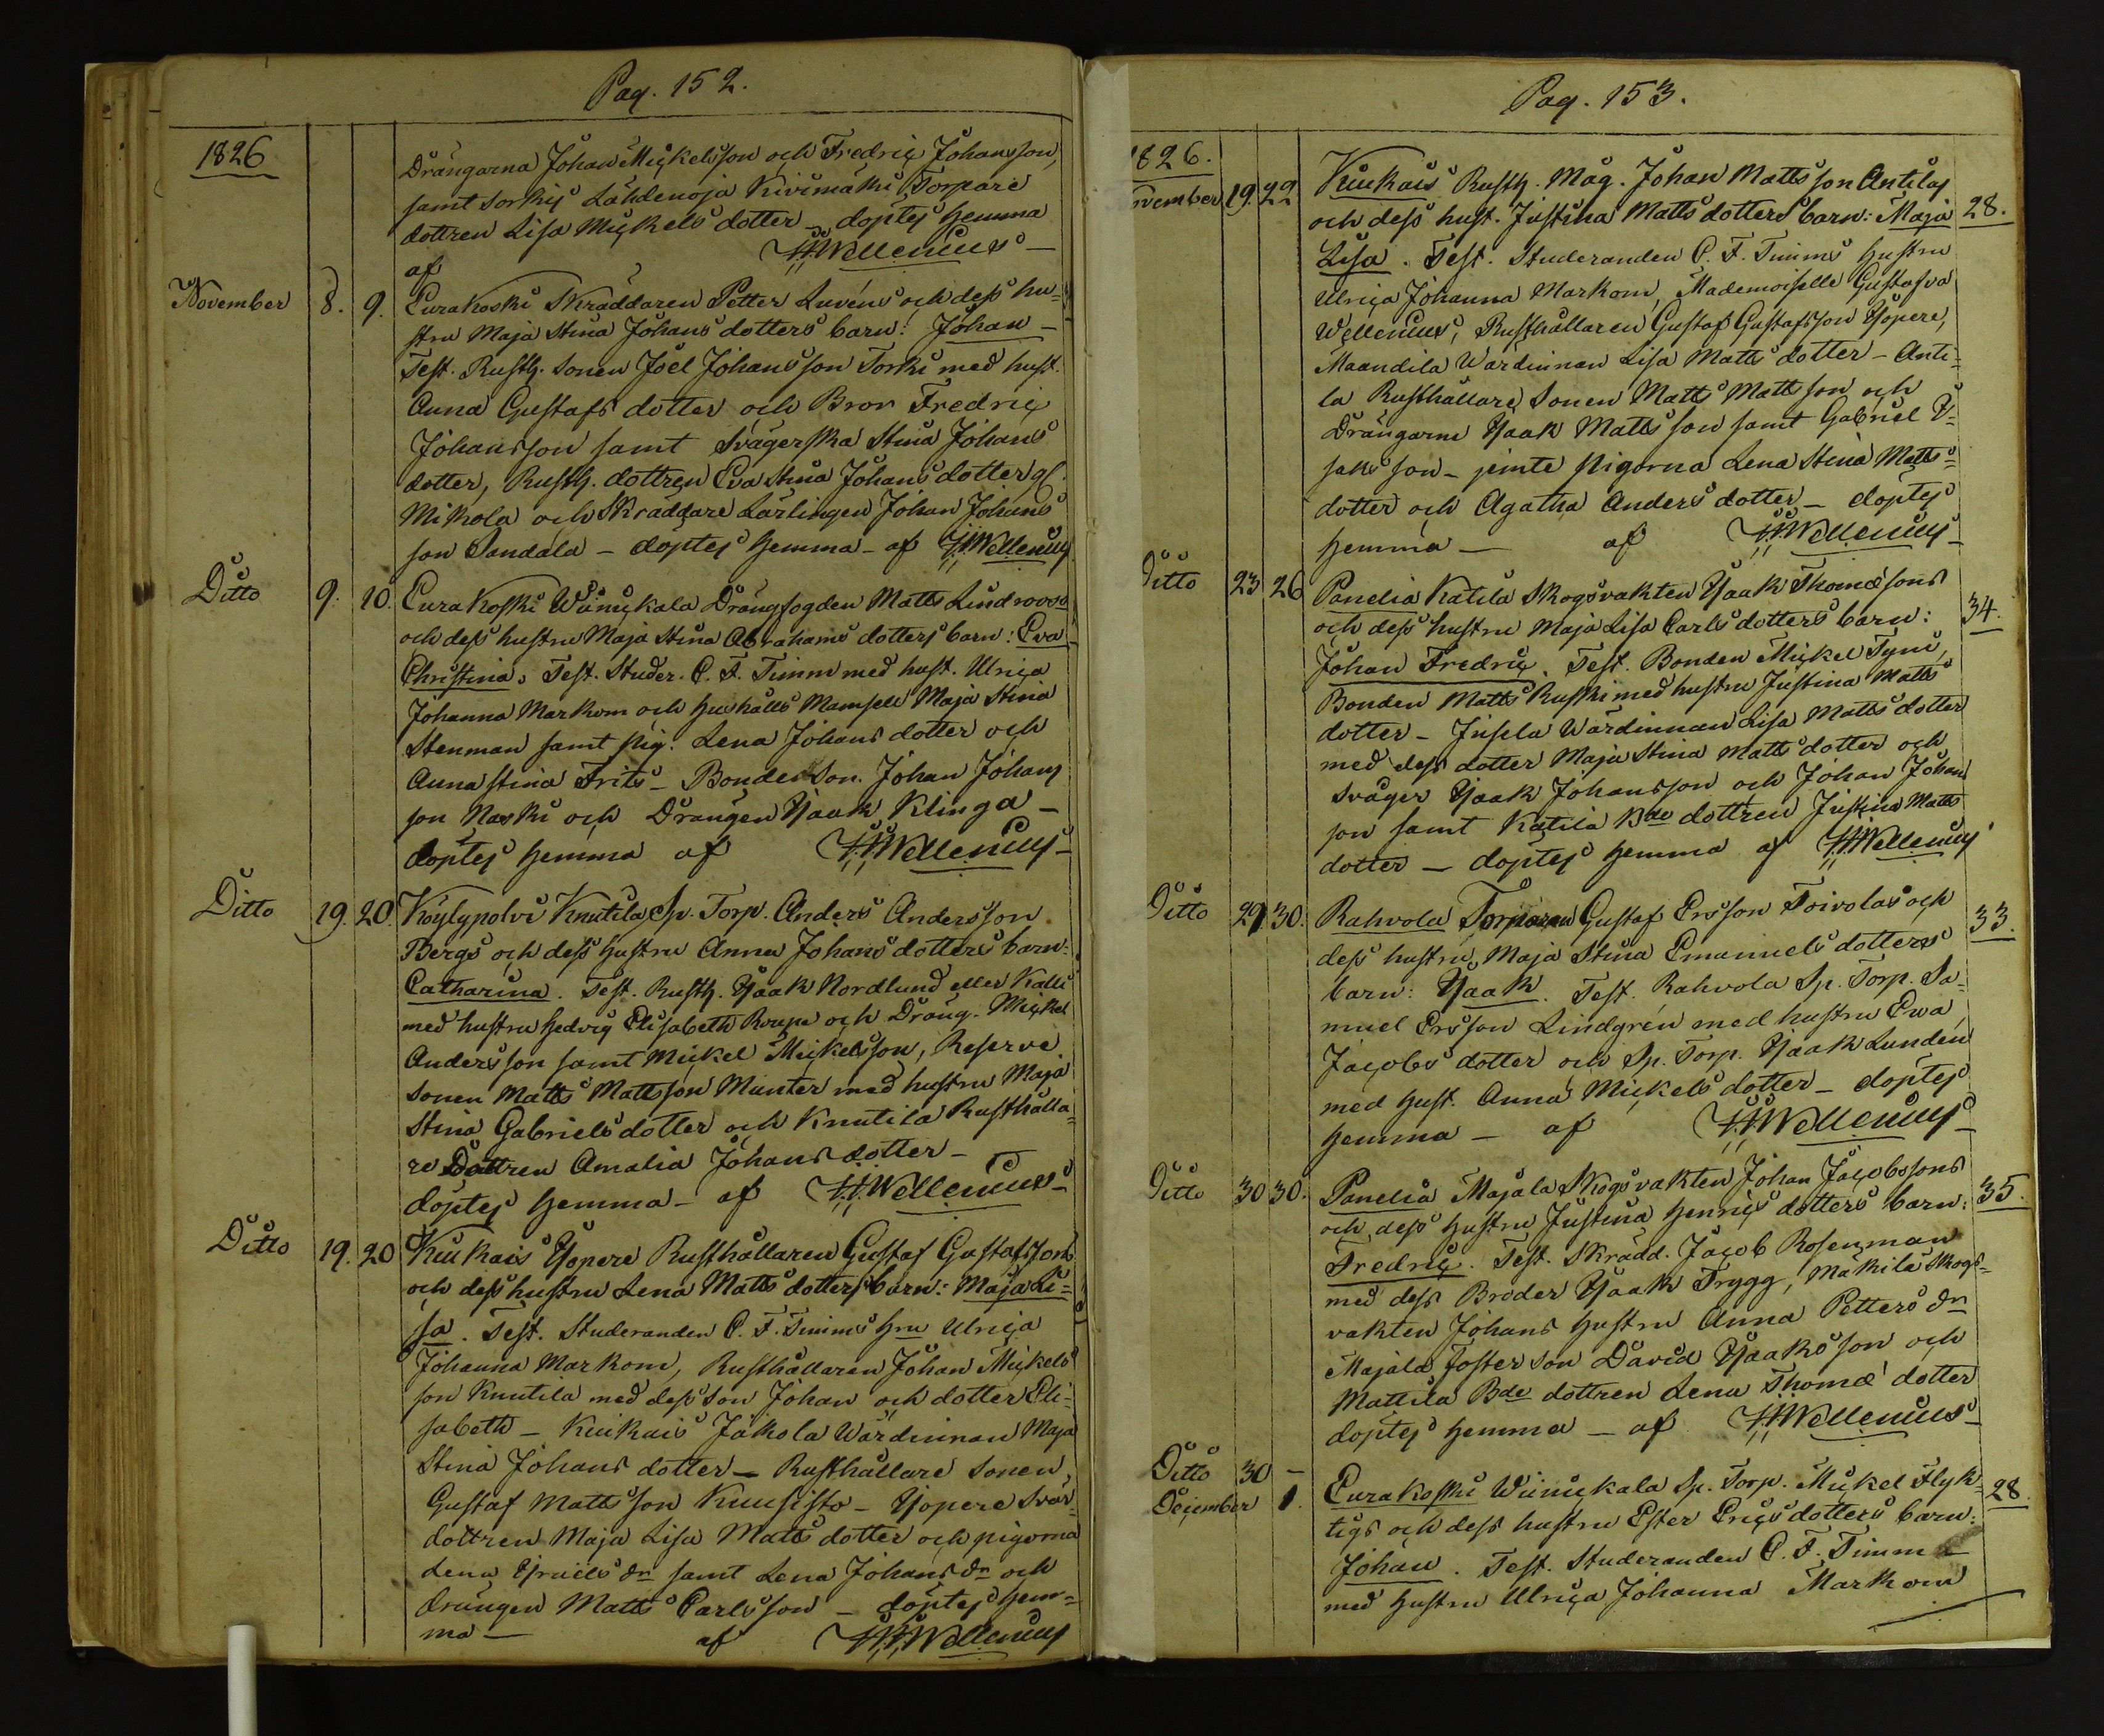 Pag. 152.
1826
Drängarna Johan Mickelsson och Fredric Johansson,
samt Sorkis Lähdenoja Kivimäki Torpare
dottren Lisa Mickels dotter – döptes hemma
af H.H. Wellenius –
November 8. 9. Eurakoski Skräddaren Petter Luvéns och dess hu=
stru Maja Stina Johans dotters barn: Johan –
Test. Rusth. Sonen Joel Johansson Torki med hust.
Anna Gustafs dotter och Bror Fredric
Johansson samt Svägerska Stina Johans
dotter, Rusth. dottren Eva Stina Johans dotter
Mikola och Skräddare Lärlingen Johan Johans
son Sandala – döptes hemma – af H.H. Wellenius
Ditto 9. 10. Eurakoski Winickala Drängfogden Matts Lindroos
och dess hustru Maja Stina Abrahams dotters barn: Eva
Christina. Test. Studer. C. F. Timm med hust. Ulrica
Johanna Markom och hushålls Mamsell Maja Stina
Stenman samt pig. Lena Johans dotter och
Anna Stina Frits – Bonde Son. Johan Johans
son Naski och Drängen Isaak Klinga –
döptes hemma af H.H. Wellenius –
Ditto 19. 20. Köylypolvi Knutila Sp. Torp. Anders Andersson
Bergs och dess hustru Anna Johans dotters barn:
Catharina. Test. Rusth. Isaak Nordlund eller Kalli
med hustru Hedvig Elisabeth Roupe och Dräng. Mickel
Andersson samt Mickel Mickelsson, Reserve
Sonen Matts Mattsson Munter med hustru Maja
Stina Gabriels dotter och Knutila Rusthålla=
re Dottren Amalia Johans dotter –
döptes hemma – af H.H. Wellenius –
Ditto 19. 20 Kiukais Yopere Rusthållaren Gustaf Gustafssons
och dess hustru Lena Matts dotters barn: Maja Li=
sa. Test. Studeranden C. F. Timms Hru Ulrica
Johanna Markom, Rusthållaren Johan Mickels
son Knutila med dess Son Johan och dotter Eli=
sabeth – Kiukais Jakola Wärdinnan Maja
Stina Johans dotter – Rusthållare Sonen,
Gustaf Mattsson Kuusisto – Yopere Svär=
dottren Maja Lisa Matts dotter och pigorna
Lena Israels dr samt Lena Johans dr och
drängen Matts Carlsson – döptes hem=
ma – af H.H. Wellenius
Pag. 153.
1826.
November 19. 22 Kiukais Rusth. Måg. Johan Mattsson Antilas
och dess hust. Justina Matts dotters barn: Maja 28.
Lisa. Test. Studeranden C. F. Timms hustru
Ulrica Johanna Markom, Mademoiselle Gustafva
Wellenius, Rusthållaren Gustaf Gustafsson Yopere,
Maandila Wärdinnan Lisa Matts dotter – Anti=
la Rusthållare Sonen Matts Mattsson och
Drängarne Isaak Mattsson samt Gabriel I=
saksson – jemte pigorna Lena Stina Matts=
dotter och Agatha Anders dotter – döptes
hemma – af H.H. Wellenius –
Ditto 23 26 Panelia Katila Skogsvakten Isaak Thomæsons
och dess hustru Maja Lisa Carls dotters barn: 34.
Johan Fredric. Test. Bonden Mickel Tyni,
Bonden Matts Ruski med hustru Justina Matts
dotter – Jusela Wärdinnan Lisa Matts dotter
med dess dotter Maja Stina Matts dotter och
Svåger Isaak Johansson och Johan Johans
son samt Katila Bde dottren Justina Matts
dotter – döptes hemma af H.H. Wellenius
Ditto 29 30. Rahvola Torparen Gustaf Ersson Toivolas och 33.
dess hustru, Maja Stina Emanuels dotters
barn: Isaak. Test. Rahvola Sp. Torp. Sa=
muel Ersson Lindgrén med hustru Ewa
Jacobs dotter och Sp. Torp. Isaak Lundén
med hust. Anna Mickels dotter – döptes
hemma – af H.H. Wellenius –
Ditto 30 30. Panelia Majala Skogsvakten Johan Jacobssons
och dess hustru Justina Henrics dotters barn: 35.
Fredric. Test. Skrädd. Jacob Rosenman
med dess Broder Isaak Trygg, Mäkilä Skogs=
vakten Johans hustru Anna Petters dr
Majala Foster son David Isaaksson och
Mattila Bde dottren Lena Thomæ dotter
döptes hemma – af H.H. Wellenius –
Ditto 30 –
December 1. Eurakoski Winickala Sp. Torp. Mickel Flyk= 28.
tigs och dess hustru Ester Erics dotters barn:
Johan. Test. Studeranden C. F. Timm –
med hustru Ulrica Johanna Markom